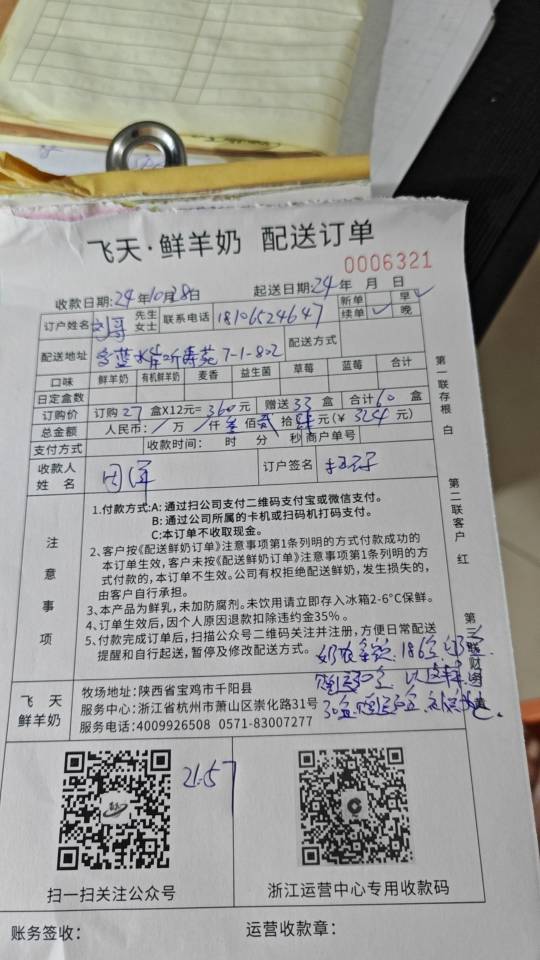 飞天·鲜羊奶 配送订单
0006321
收款日期:24年10月28日 起送日期:24年 月 日
订户姓名 刘哥 先生 女士 联系电话 18106524647 新单 续单 ✓ 早 ✓ 晚
配送地址 蓝水岸听涛苑7-1-802 配送方式
口味 鲜羊奶 有机鲜羊奶 麦香 益生菌 草莓 蓝莓 合计
日定盒数
订购价 订购27盒X12元=360元 赠送33盒 合计60盒
总金额 人民币: / 万 / 仟 叁 佰 贰 拾 肆 元(¥ 324 元)
支付方式 收款时间: 时 分 秒 商户单号
收款人姓名 订户签名
注意事项
1.付款方式:A: 通过扫公司支付二维码支付宝或微信支付。
B: 通过公司所属的卡机或扫码机打码支付。
C:本订单不收取现金。
2、客户按《配送鲜奶订单》注意事项第1条列明的方式付款成功的
本订单生效,客户未按《配送鲜奶订单》注意事项第1条列明的方
式付款的,本订单不生效。公司有权拒绝配送鲜奶,发生损失的,
由客户自行承担。
3、本产品为鲜乳,未加防腐剂。未饮用请立即存入冰箱2-6°C保鲜。
4、订单生效后,因个人原因退款扣除违约金35%。
5、付款完成订单后,扫描公众号二维码关注并注册,方便日常配送
提醒和自行起送,暂停及修改配送方式。
飞天鲜羊奶
牧场地址:陕西省宝鸡市千阳县
服务中心:浙江省杭州市萧山区崇化路31号
服务电话:4009926508 0571-83007277
30盒
21:57
扫一扫关注公众号
浙江运营中心专用收款码
账务签收:
运营收款章:
第一联存根 白
第二联客户 红
第三联财务